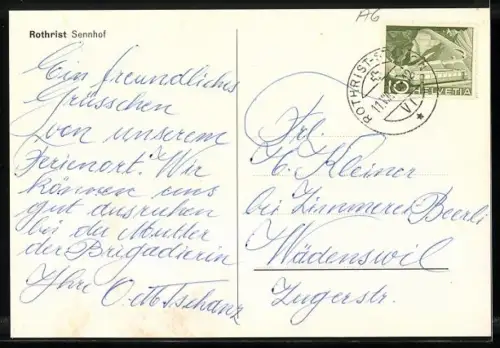 Rothrist Sennhof
A6
Ein freundliches
Grüsschen
von unserem
Ferienort. Wir
können uns
gut ausruhen
bei der Mutter
der Brigadierin
Ihre O. + M. Tschanz
10 HELVETIA
ROTHRIST-
VI
Frl.
H. Kleiner
bei Zimmerei Beerli
Wädenswil
Zugerstr.